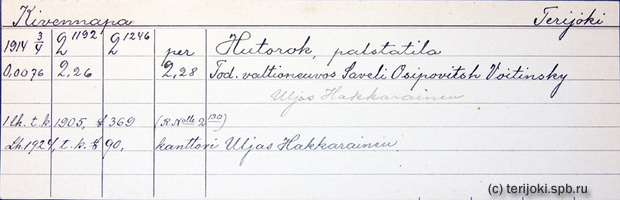 Kivennapa Terijoki
1914 3/4 2 1192 2 1246 per Hutorok, palstatila
0,0076 2,26 2,28 Tod. valtioneuvos Saveli Osipovitsh Voitinsky
Uljas Hakkarainen
1 lh. t. k 1905, § 369 (R. Nolle 2 190)
Lh. 1924, t. k. § 90, kanttori Uljas Hakkarainen.
(c) terijoki.spb.ru